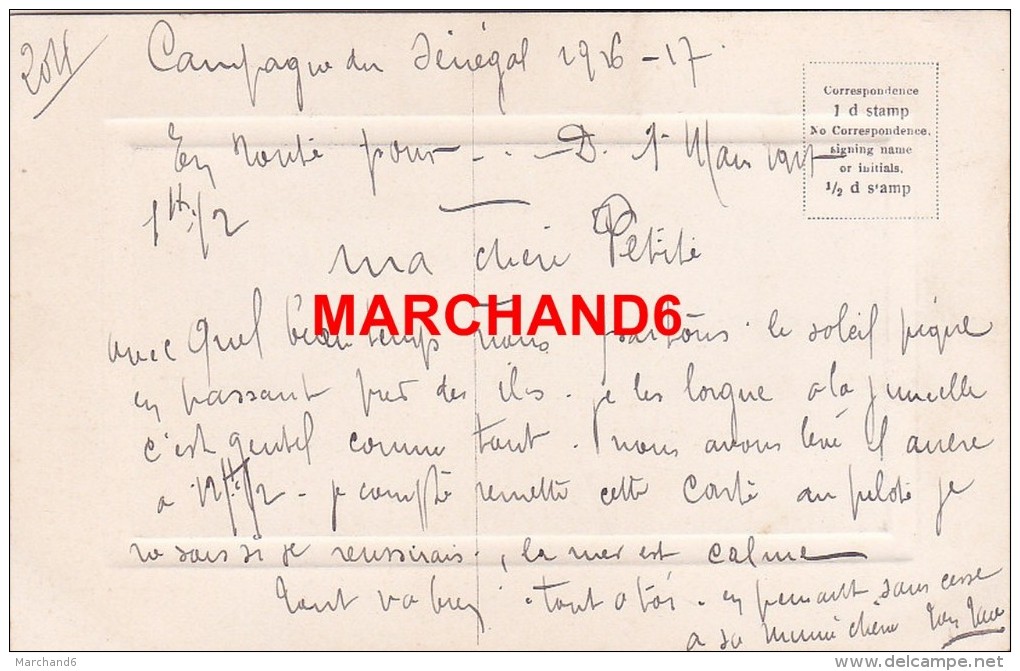 2011
Campagne du Sénégal 1916-17
Correspondence
1 d stamp
No Correspondence,
signing name
or initials,
1/2 d stamp
En route pour - . . - D. 1r Mars 1917
1H 1/2
ma chere Petite
MARCHAND6
avec Quel beau temps nous partons. le soleil pique
en passant pres des iles. je les lorgne a la jumelle
c'est gentil comme tout. nous avons levé l ancre
a 12H 1/2 - je compte remettre cette carte au pilote je
ne sais si je reussirais, la mer est calme
tout va bien. tout a toi. en pensant sans cesse
a sa mumi chérie
Marchand6
www.delcampe.net